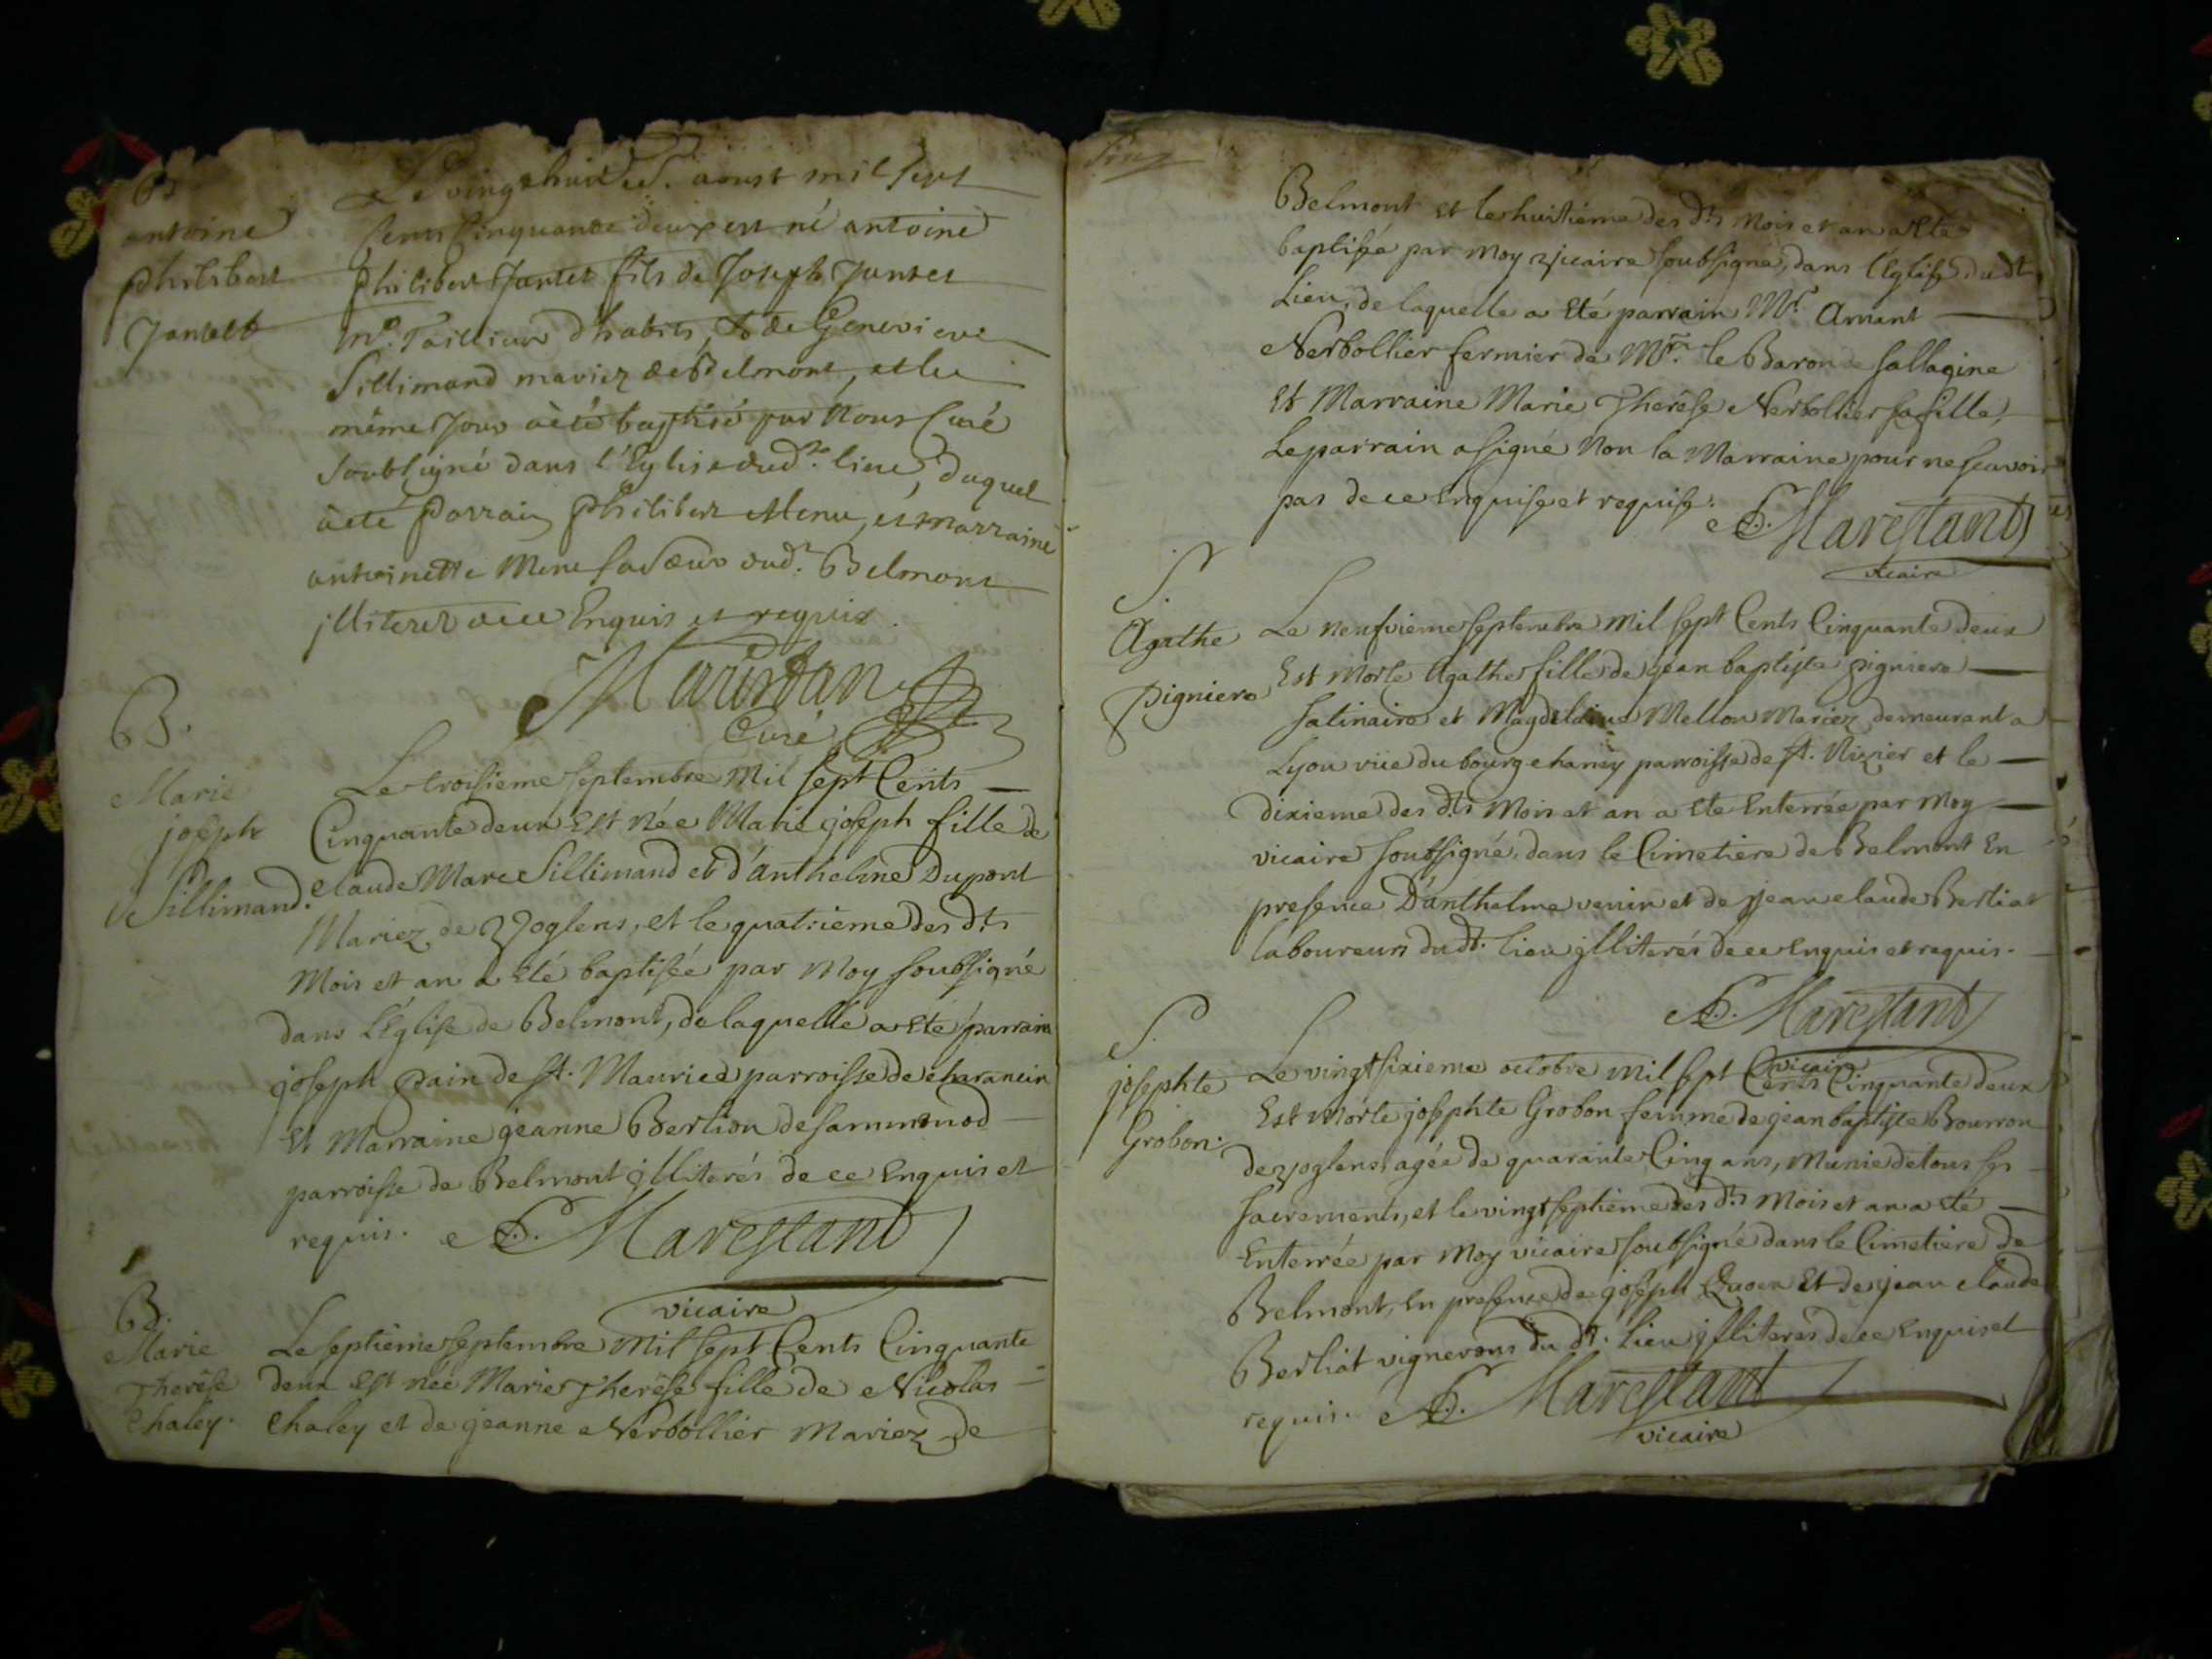 B.
antoine
philibert
Jantet
Le vingt huit aoust mil sept
Cents Cinquante deux est né antoine
philibert Jantet fils de Joseph Jantet
me. Tailleur d'habits, & de Genevieve
Sillimand mariez de Belmont, et le
même jour àété baptisé par Nous Curé
Soubsigné dans l'Eglise dud.t lieu, duquel
àeté Parrain philibert Menu, et marraine
antoinette Menu sa sœur dud.t Belmont
jlliterez dece Enquis et requis.
Marestan
Curé
B.
Marie
joseph
Sillimand.
Le troisieme septembre Mil sept Cents
Cinquante deux Est Née Marie joseph fille de
Claude Marc Sillimand et d'antheline Dupont
Mariez de Voglens, et le quatrieme des dts
Mois et an a Eté baptisée par Moy soubsigné
dans L'Eglise de Belmont, de laquelle a Eté parrain
joseph pain de st. Maurice parroisse de charancin
Et Marraine jeanne Bertion de sammonod
parroisse de Belmont jlliterés de ce Enquis et
requis. Marestant
vicaire
B.
Marie
Therése
Chaley.
Le septieme septembre Mil sept Cents Cinquante
deux Est née Marie Therése fille de Nicolas
Chaley et de jeanne Nerbollier Mariez de
Belmont et le huitiéme des dts Mois et an a Eté
baptisée par Moy vicaire soubsigné, dans l'Eglise dudt
Lieu, de laquelle a Eté parrain Mr. Amant
Nerbollier fermier de Mr. le Baron de sallagine
Et Marraine Marie Therése Nerbollier sa fille,
Le parrain a signé Non la Marraine pour ne scavoir
pas de ce Enquise et requise. Marestant
vicaire
S.
Agathe
pigniere
Le Neufvieme septembre Mil sept Cents Cinquante deux
Est Morte Agathe fille de jean baptiste pigniere
satinaire et Magdelaine Mellon Mariez demeurant a
Lyon rüe du bourg chanin parroisse de st. Nizier et le
dixieme des dts Mois et an a Eté Enterrée par Moy
vicaire soubsigné dans le Cimetiere de Belmont En
presence D'anthelme venin et de jean claude Berliat
laboureurs du dt. lieu jlliterés de ce Enquis et requis.
Marestant
vicaire
S.
josephte
Grobon.
Le vingt sixieme octobre Mil sept Cents Cinquante deux
Est Morte josephte Grobon femme de jean baptiste Bourron
de voglens, agée de quarante Cinq ans, Munie de tous ses
sacrements, et le vingt septieme des dts Mois et an a Eté
Enterrée par Moy vicaire soubsigné dans le Cimetiere de
Belmont, En presence de joseph Et de jean claude
Berliat vignerons du dt. Lieu jlliteres de ce Enquis et
requis. Marestant
vicaire